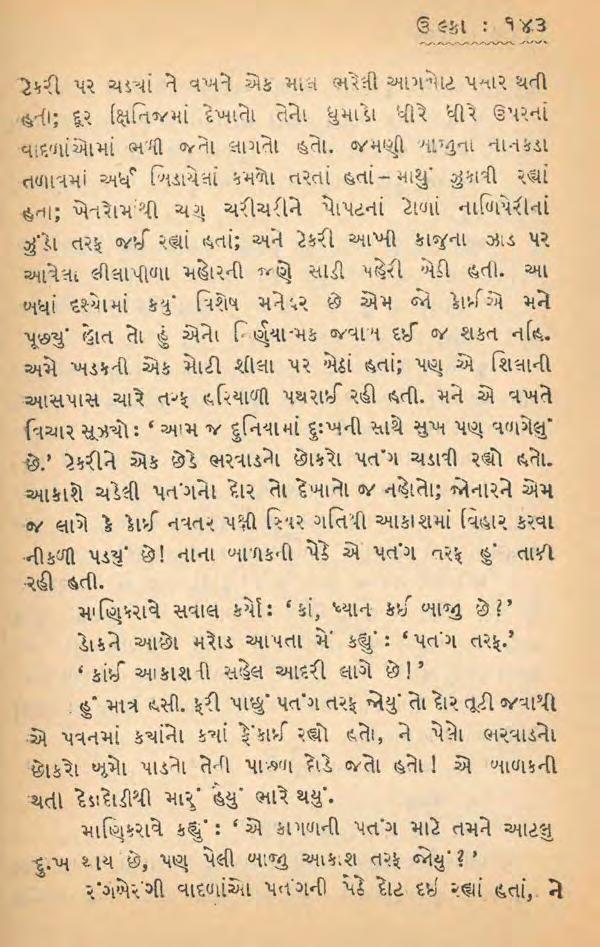 ઉલ્કા : ૧૪૩
ટેકરી પર ચડ્યાં તે વખતે એક માલ ભરેલી આગબોટ પસાર થતી
હતી; દૂર ક્ષિતિજમાં દેખાતો તેનો ધુમાડો ધીરે ધીરે ઉપરનાં
વાદળાંઓમાં ભળી જતો લાગતો હતો. જમણી બાજુના નાનકડા
તળાવમાં અર્ધ બિડાયેલાં કમળો તરતાં હતાં–માથું ઝુકાવી રહ્યાં
હતા; ખેતરોમાંથી ચણ ચરીચરીને પોપટનાં ટોળાં નાળિયેરીનાં
ઝુંડો તરફ જઈ રહ્યાં હતાં; અને ટેકરી આખી કાજુના ઝાડ પર
આવેલા લીલાપીળા મહોરની જાણે સાડી પહેરી બેઠી હતી. આ
બધાં દૃશ્યોમાં કયું વિશેષ મનોહર છે એમ જો કોઈએ મને
પૂછ્યું હોત તો હું એનો નિર્ણયાત્મક જવાબ દઈ જ શકત નહિ.
અમે ખડકની એક મોટી શીલા પર બેઠાં હતાં; પણ એ શિલાની
આસપાસ ચારે તરફ હરિયાળી પથરાઈ રહી હતી. મને એ વખતે
વિચાર સૂઝ્યો: ‘આમ જ દુનિયામાં દુઃખની સાથે સુખ પણ વળગેલું
છે.’ ટેકરીને એક છેડે ભરવાડનો છોકરો પતંગ ચડાવી રહ્યો હતો.
આકાશે ચડેલી પતંગનો દોર તો દેખાતો જ નહોતો; જોનારને એમ
જ લાગે કે કોઈ નવતર પક્ષી સ્થિર ગતિથી આકાશમાં વિહાર કરવા
નીકળી પડ્યું છે! નાના બાળકની પેઠે એ પતંગ તરફ હું તાકી
રહી હતી.
માણિકરાવે સવાલ કર્યો: ‘કાં, ધ્યાન કઈ બાજુ છે?’
ડોકને આછો મરોડ આપતા મેં કહ્યું: ‘પતંગ તરફ.’
‘કાંઈ આકાશની સહેલ આદરી લાગે છે!’
હું માત્ર હસી. ફરી પાછું પતંગ તરફ જોયું તો દોર તૂટી જવાથી
એ પવનમાં ક્યાંનો ક્યાં ફેંકાઈ રહ્યો હતો, ને પેલો ભરવાડનો
છોકરો બૂમો પાડતો તેની પાછળ દોડે જતો હતો! એ બાળકની
થતી દોડાદોડીથી મારું હૈયું ભારે થયું.
માણિકરાવે કહ્યું: ‘એ કાગળની પતંગ માટે તમને આટલુ
દુઃખ થાય છે, પણ પેલી બાજુ આકાશ તરફ જોયું?’
રંગબેરંગી વાદળાંઓ પતંગની પેઠે દોટ દઈ રહ્યાં હતાં, ને